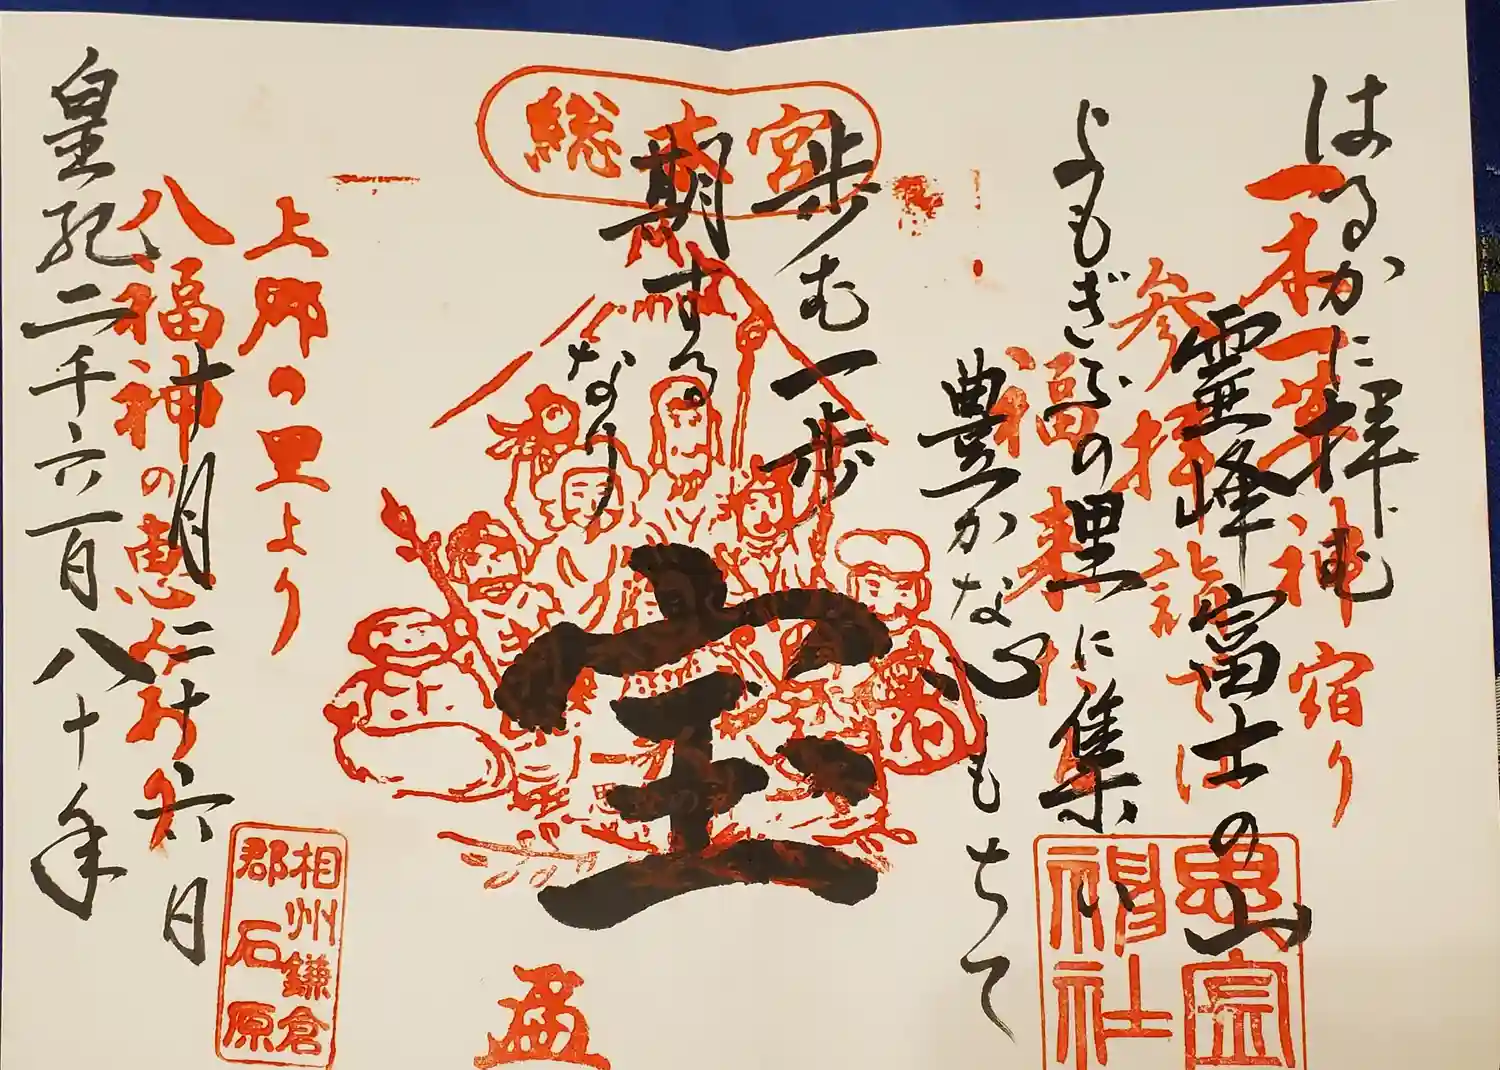 はるかに拝む
霊峰富士の山
よもぎふの里に集い
豊かな心もちて
歩む一歩一歩
期する
なり
宝
十月二十六日
皇紀二千六百八十年
一木一草神宿り
参拝詣では
福来
総本宮
思金
神社
上郷の里より
八福神の恵
相州鎌倉
郡石原